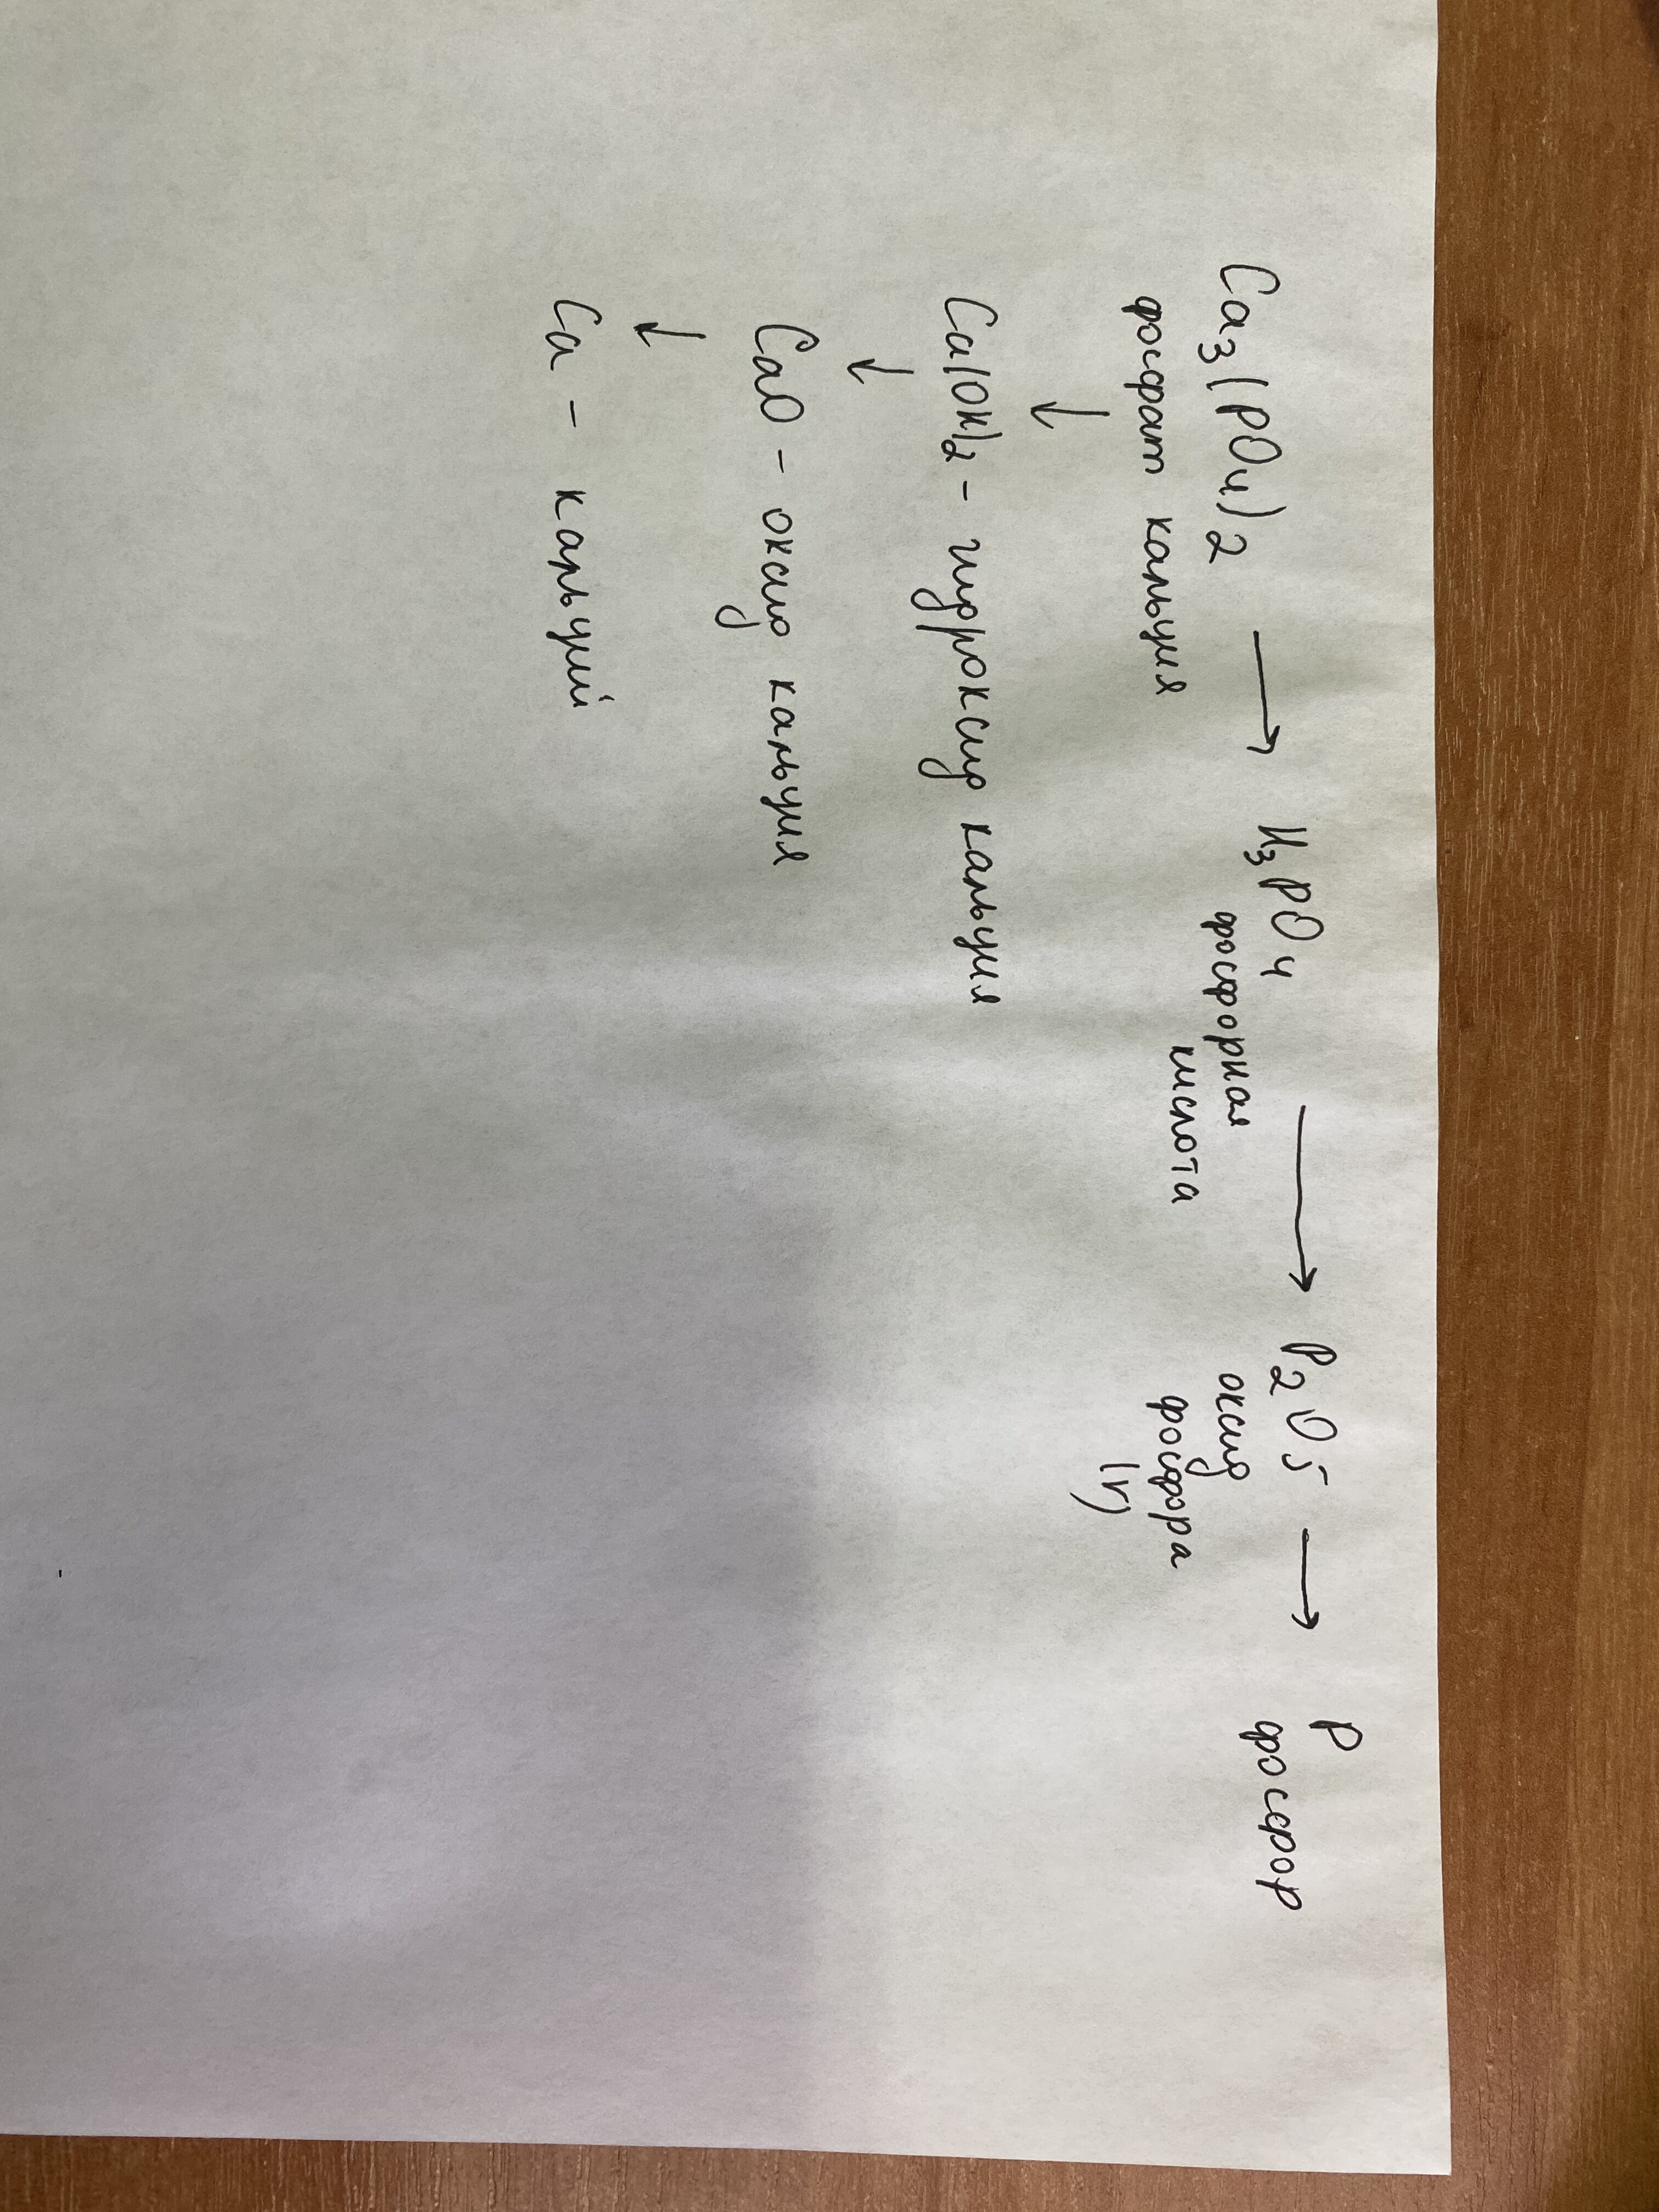 Ca3(PO4)2 → H3PO4 → P2O5 → P
фосфат кальция фосфорная оксид фосфор
кислота фосфора
(V)
↓
Ca(OH)2 - гидроксид кальция
↓
CaO - оксид кальция
↓
Ca - кальций